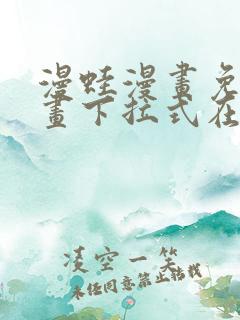 漫蛙漫畫免
畫下拉式在
凌空一笑
未经同意禁止转载